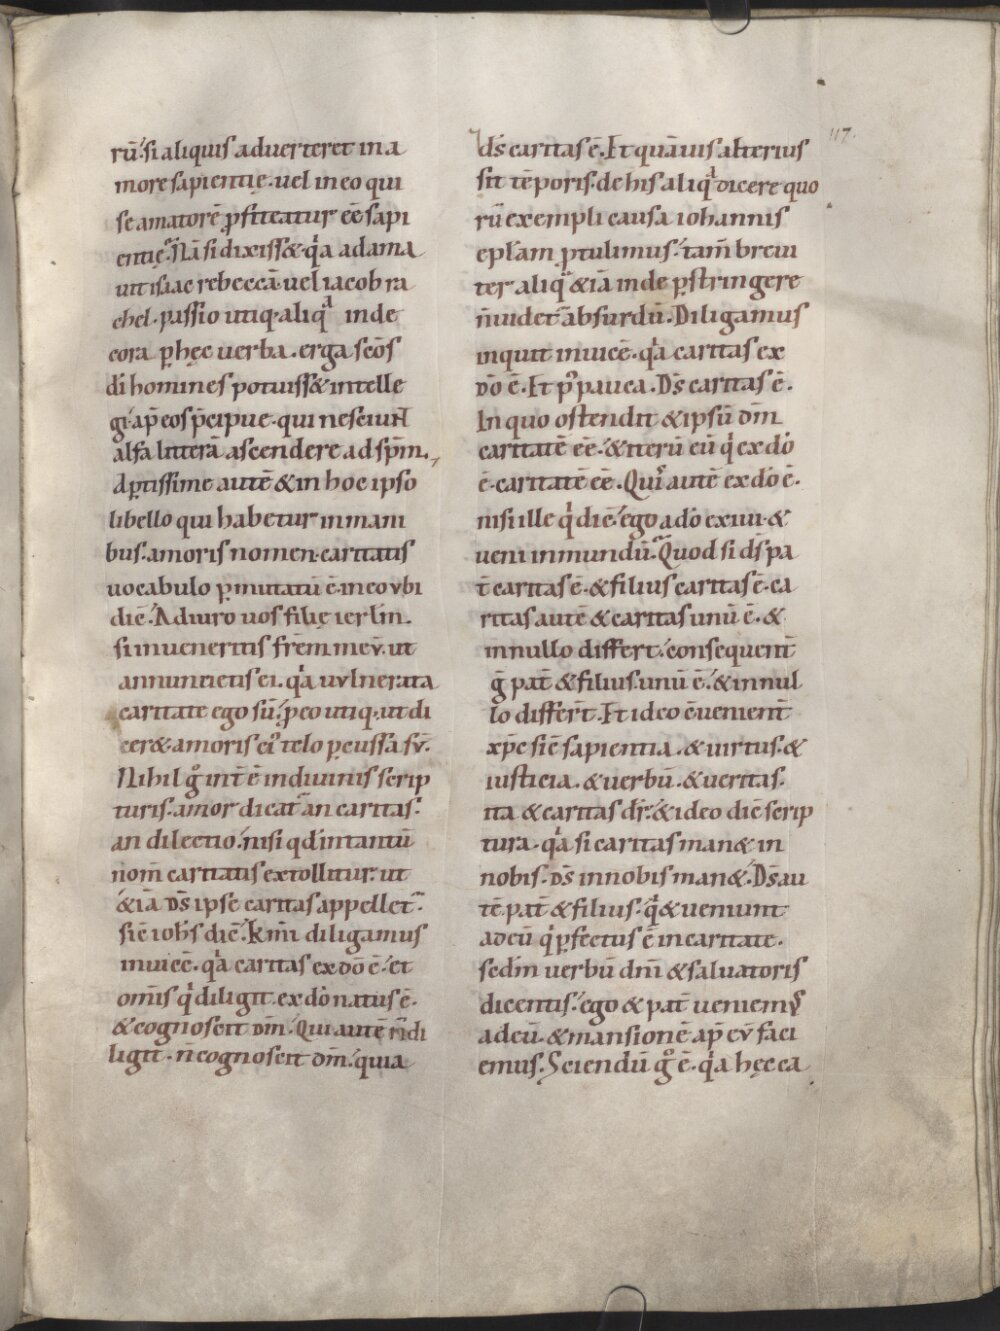 rū. si aliquis adverteret in a
more sapientię. vel in eo qui
se amatorē ꝓfiteatur eē sapi
entię. Nā si dixiss& qa adama
uit isaac rebeccā. uel iacob ra
chel. passio utiq. aliqa inde
cora ꝑ hęc verba. erga scōs
dī homines potuiss& intelle
gi. ap̄ eos p̄cipue. qui nesciunt
alfa litterā ascendere ad sp̄m.
Aꝑtissime autē & in hoc ipso
libello qui habetur in mani
bus. amoris nomen. caritatis
vocabulo ꝑmutatū ē. in eo vbi
dic̄. Adiuro vos filię ierlm̄.
si inveneritis frēm mev̄. ut
annuncietis ei. qa uvlnerata
caritate ego sū. p eo utiq. ut di
cer&. amoris ei' telo ꝑcussa sv̄.
Nihil go int̄ ē in divinis scrip
turis. amor dicat' an caritas.
an dilectio. nisi qd in tantū
nom̄ caritatis extollitur. ut
& iā ds̄ ipse caritas appellet'.
sic̄ iohs̄ dic̄. Km̄i diligamus
invicē. qa caritas ex dō ē. et
omīs qi diligit. ex dō natus ē.
& cognoscit dm̄. Qui autē n̄ di
ligit. n̄ cognoscit dm̄. quia
ds̄ caritas ē. Et quāuis alterius
sit tēporis. de his aliqa dicere quo
rū exempli causa iohannis
epłam ꝓtulimus. tam̄ brevi
ter aliqa & iā inde ꝑstringere
n̄ videt' absurdū. Diligamus
inquit invicē. qa caritas ex
dō ē. Et p' pauca. Ds̄ caritas ē.
In quo ostendit & ipsū dm̄
caritatē eē. & iterū eū qi ex dō
ē. caritatē eē. Quis autē ex dō ē.
nisi ille qi dic̄. ego a dō exivi. &
veni in mundū. Quod si ds̄ pa
t̄ caritas ē. & filius caritas ē. ca
ritas autē & caritas unū ē. &
in nullo differt. consequent̄
g pat̄ & filius. unū ē. & in nul
lo differt̄. Et ideo c̄venient̄
xp̄c sic̄ sapientia. & virtus. &
iusticia. & verbū. & veritas.
ita & caritas dr̄. & ideo dic̄ scrip
tura. qa si caritas man& in
nobis. ds̄ in nobis man&. Ds̄ au
tē pat̄ & filius. qi & veniunt
ad eū qi ꝑfectus ē in caritate.
sedm̄ verbū dm̄i & salvatoris
dicentis. ego & pat̄ veniem's
ad eū. & mansionē ap̄ ev̄ faci
emus. Sciendū go ē. qa hęc ca
117.